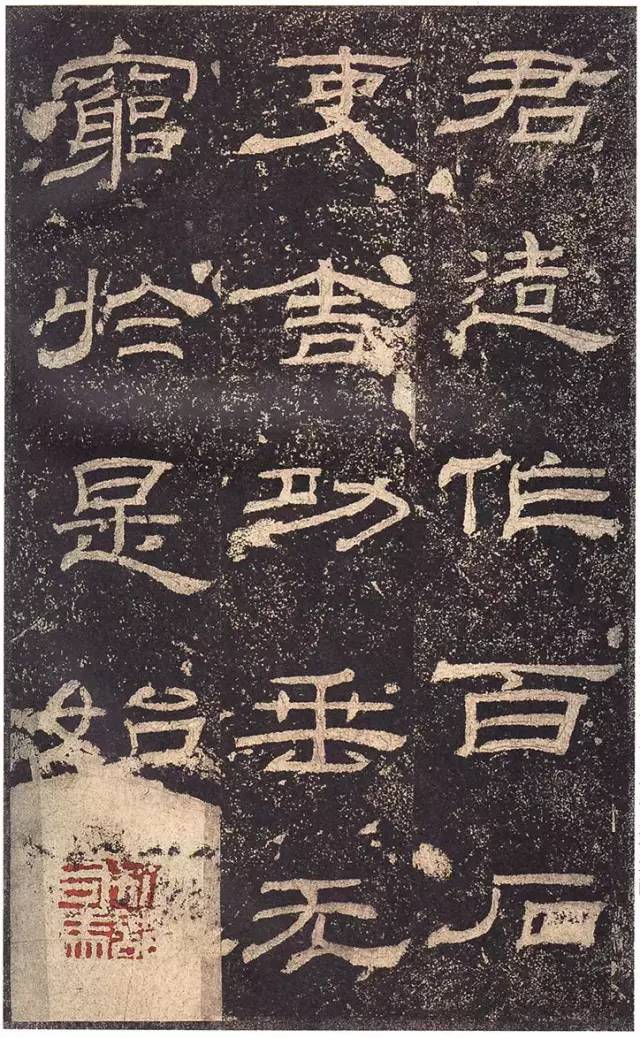 君造作百石
吏舍功垂无
窮於是始